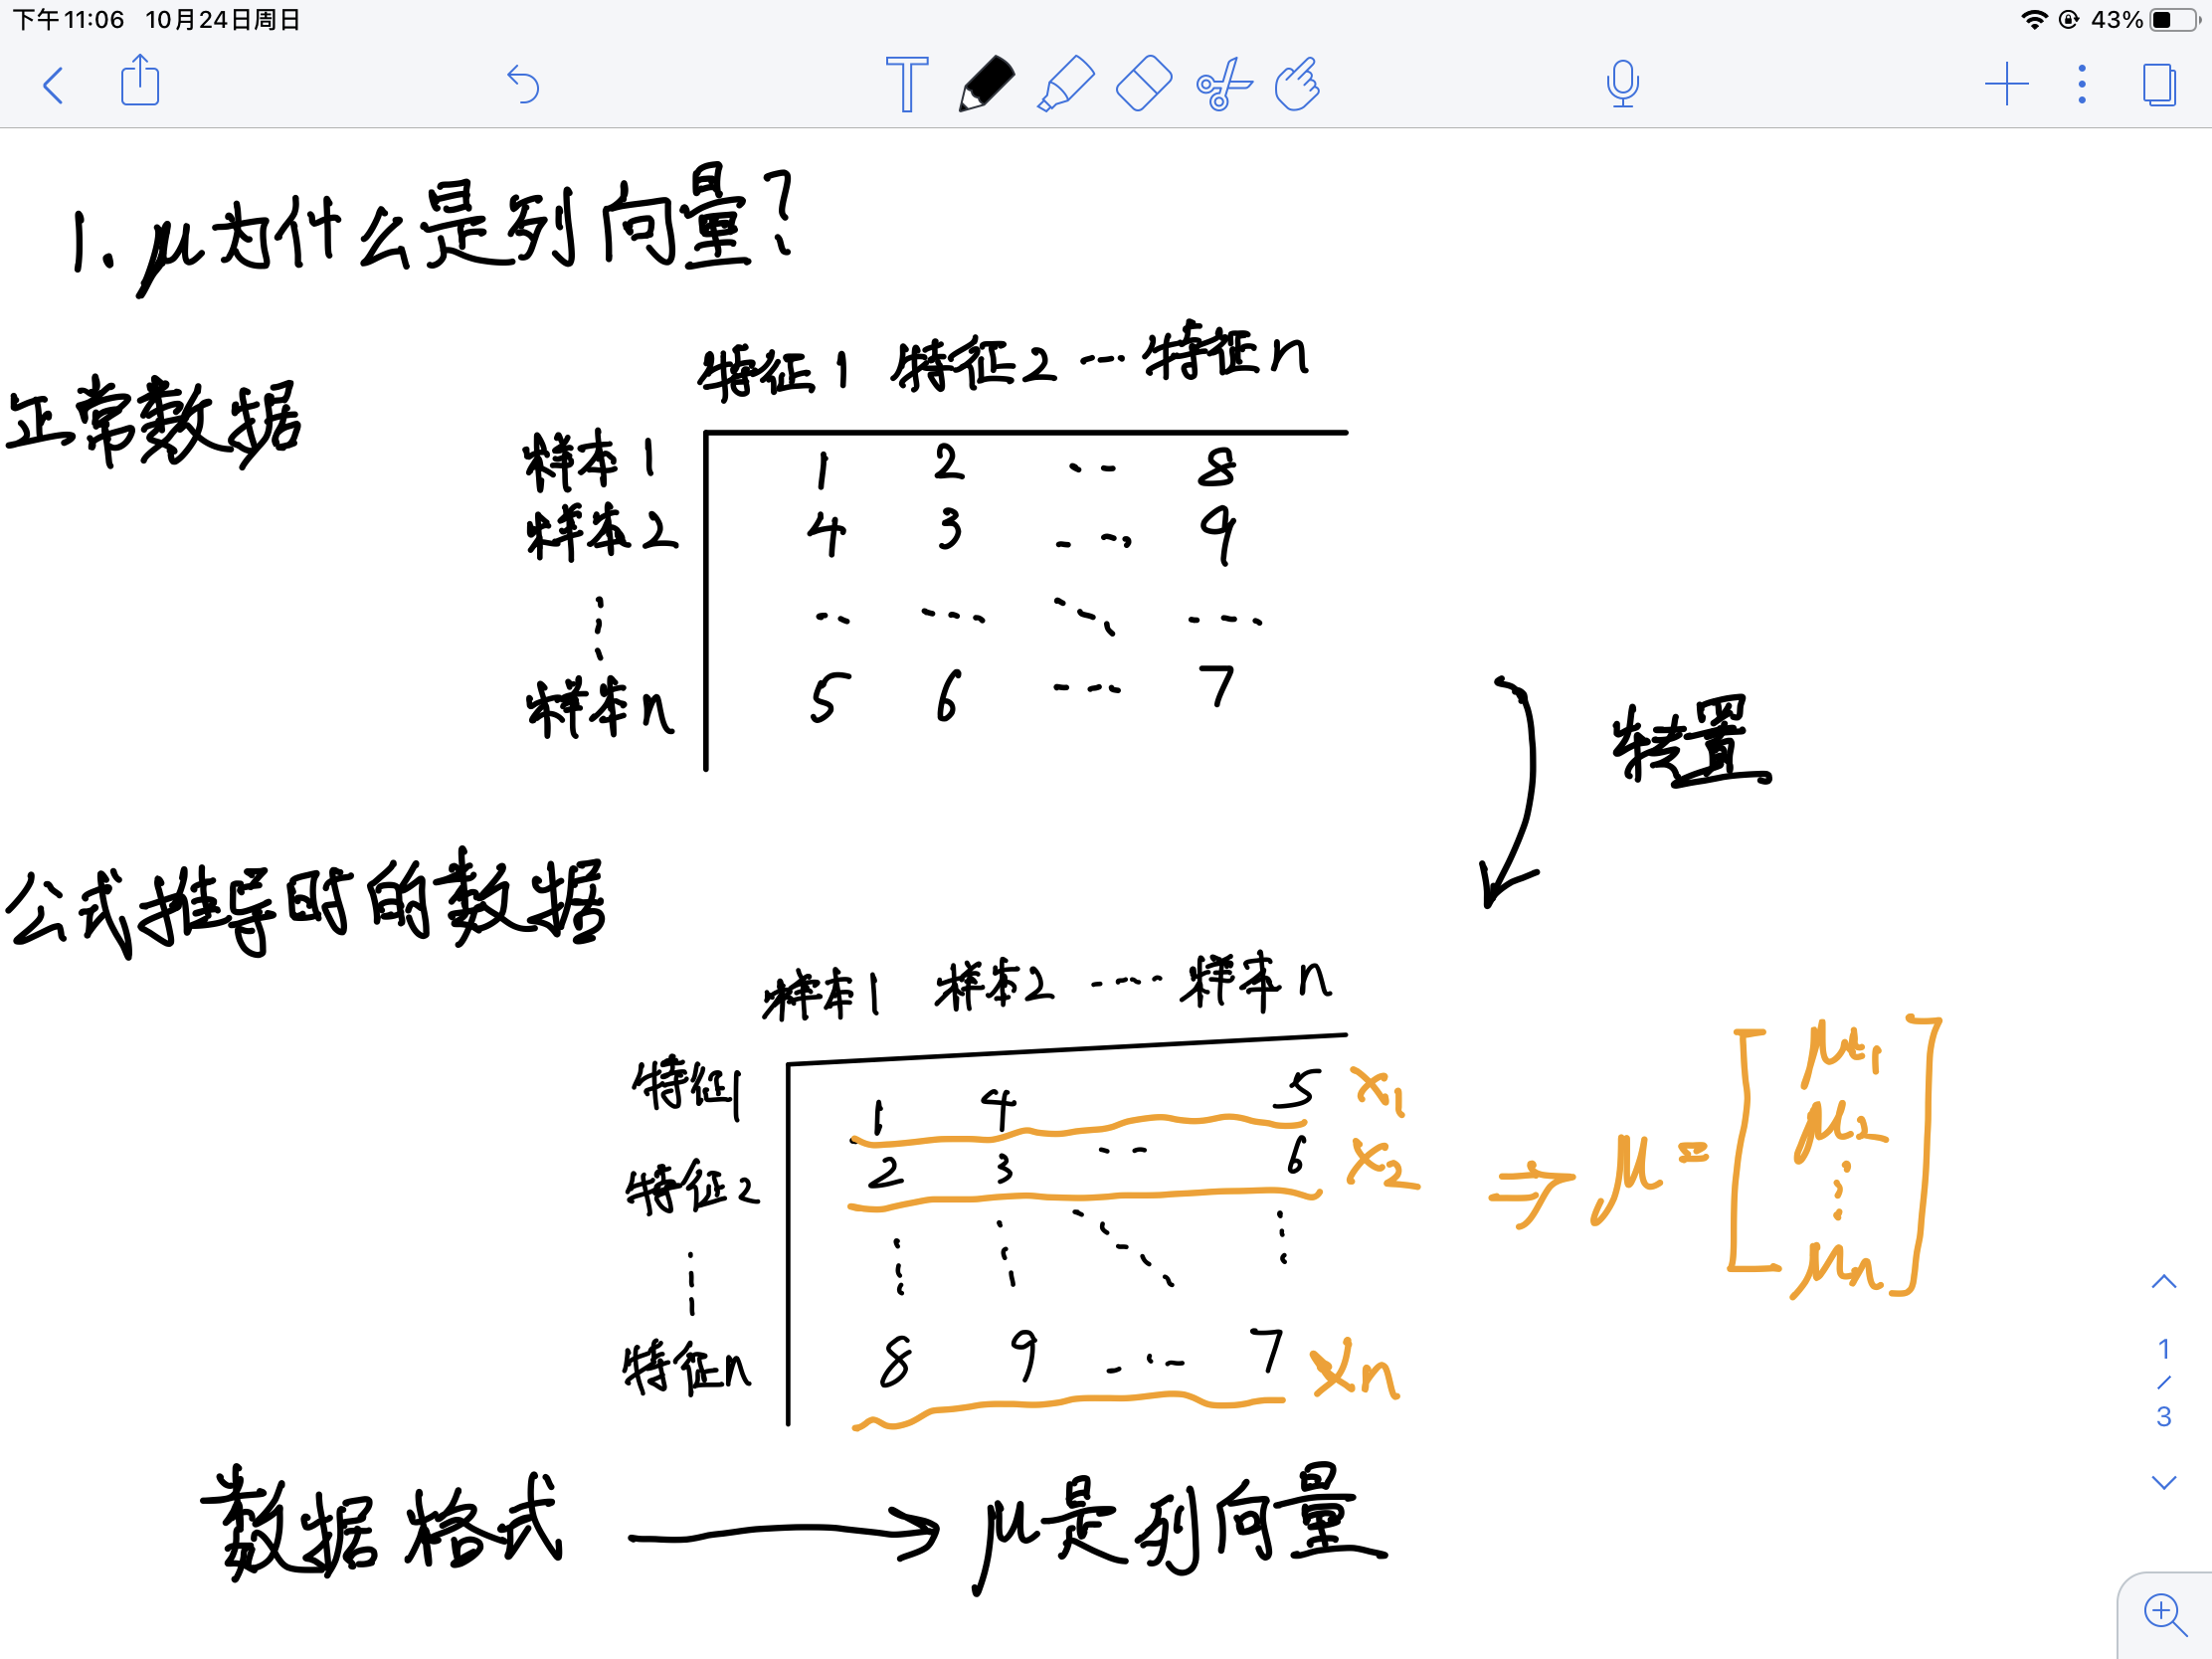 下午11:06 10月24日周日 43%
1. μ为什么是列向量?
正常数据
特征1 特征2 ... 特征n
样本1 1 2 ... 8
样本2 4 3 ... 9
样本n 5 6 ... 7
转置
公式推导时的数据
样本1 样本2 ... 样本n
特征1 1 4 5 x₁
特征2 2 3 ... 6 x₂
⇒ μ = [μ₁ μ₂ ⋮ μₙ]
特征n 8 9 ... 7 xₙ
1/3
数据格式 → μ是列向量